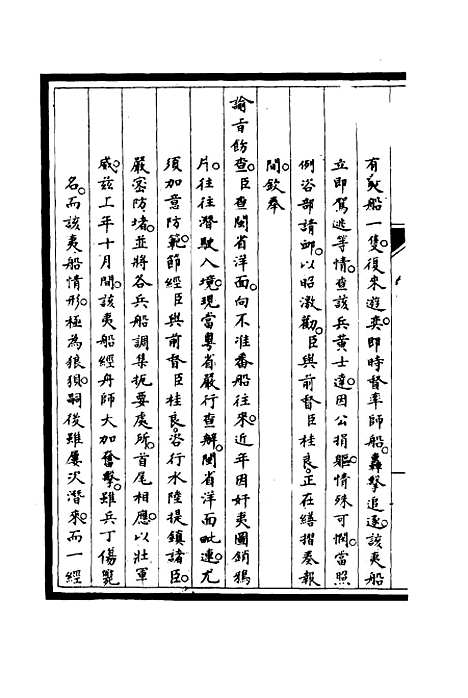 有夷船一隻。復來遊奕。即時督率師船。轟擊追逐。該夷船
立即駕逃等情。查該兵黃士達。因公捐軀。情殊可憫。當照
例咨部請䘏。以昭激勸。臣與前督臣桂良。正在繕摺奏報
間。欽奉
諭旨飭查。臣查閩省洋面。向不准番船往來。近年因奸夷圖銷鴉
片。往往潛駛入境。現當粵省嚴行查辦。閩省洋面毗連。尤
須加意防範。節經臣與前督臣桂良。咨行水陸提鎮諸臣。
嚴密防堵。並將各兵船調集扼要處所。首尾相應。以壯軍
威。茲上年十月間。該夷船經舟師大加奮擊。雖兵丁傷斃
名。而該夷船情形。極為狼狽。嗣後雖屢次潛來。而一經